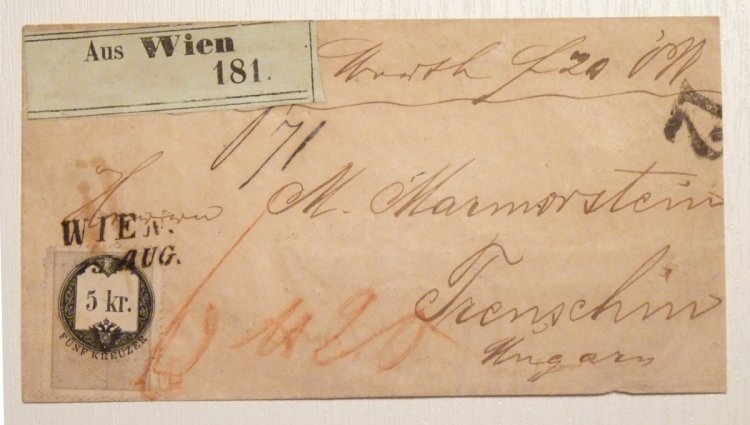 Aus Wien
181.
Werth f 20 ÖW
71
Herrn
M. Marmorstein
WIEN.
AUG.
5 kr.
FÜNF KREUZER
Trenschin
Ungarn